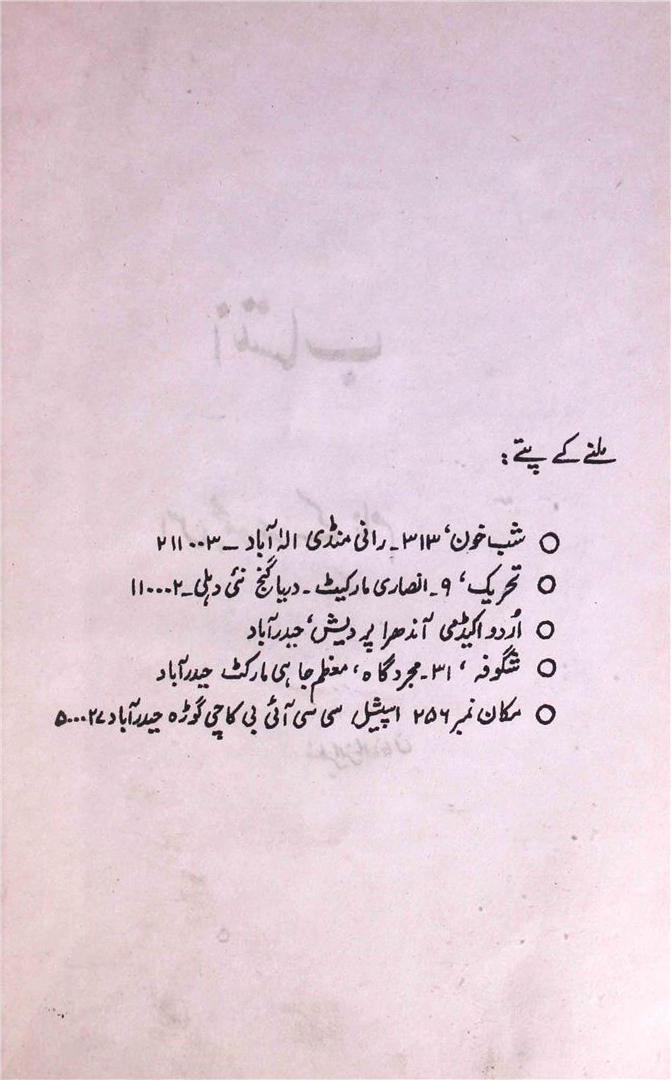 ملنے کے پتے:
○ شب خون، ۳۱۳۔ رانی منڈی الہٰ آباد ۔ ۲۱۱۰۰۳
○ تحریک، ۹۔ انصاری مارکیٹ۔ دریا گنج نئی دہلی۔ ۱۱۰۰۰۲
○ اُردو اکیڈمی آندھرا پردیش، حیدرآباد
○ شگوفہ، ۳۱۔ مجردگاہ، معظم جاہی مارکٹ حیدرآباد
○ مکان نمبر ۲۵۶ اسپیشل سی سی آئی بی کاچی گوڑہ حیدرآباد ۵۰۰۰۲۷